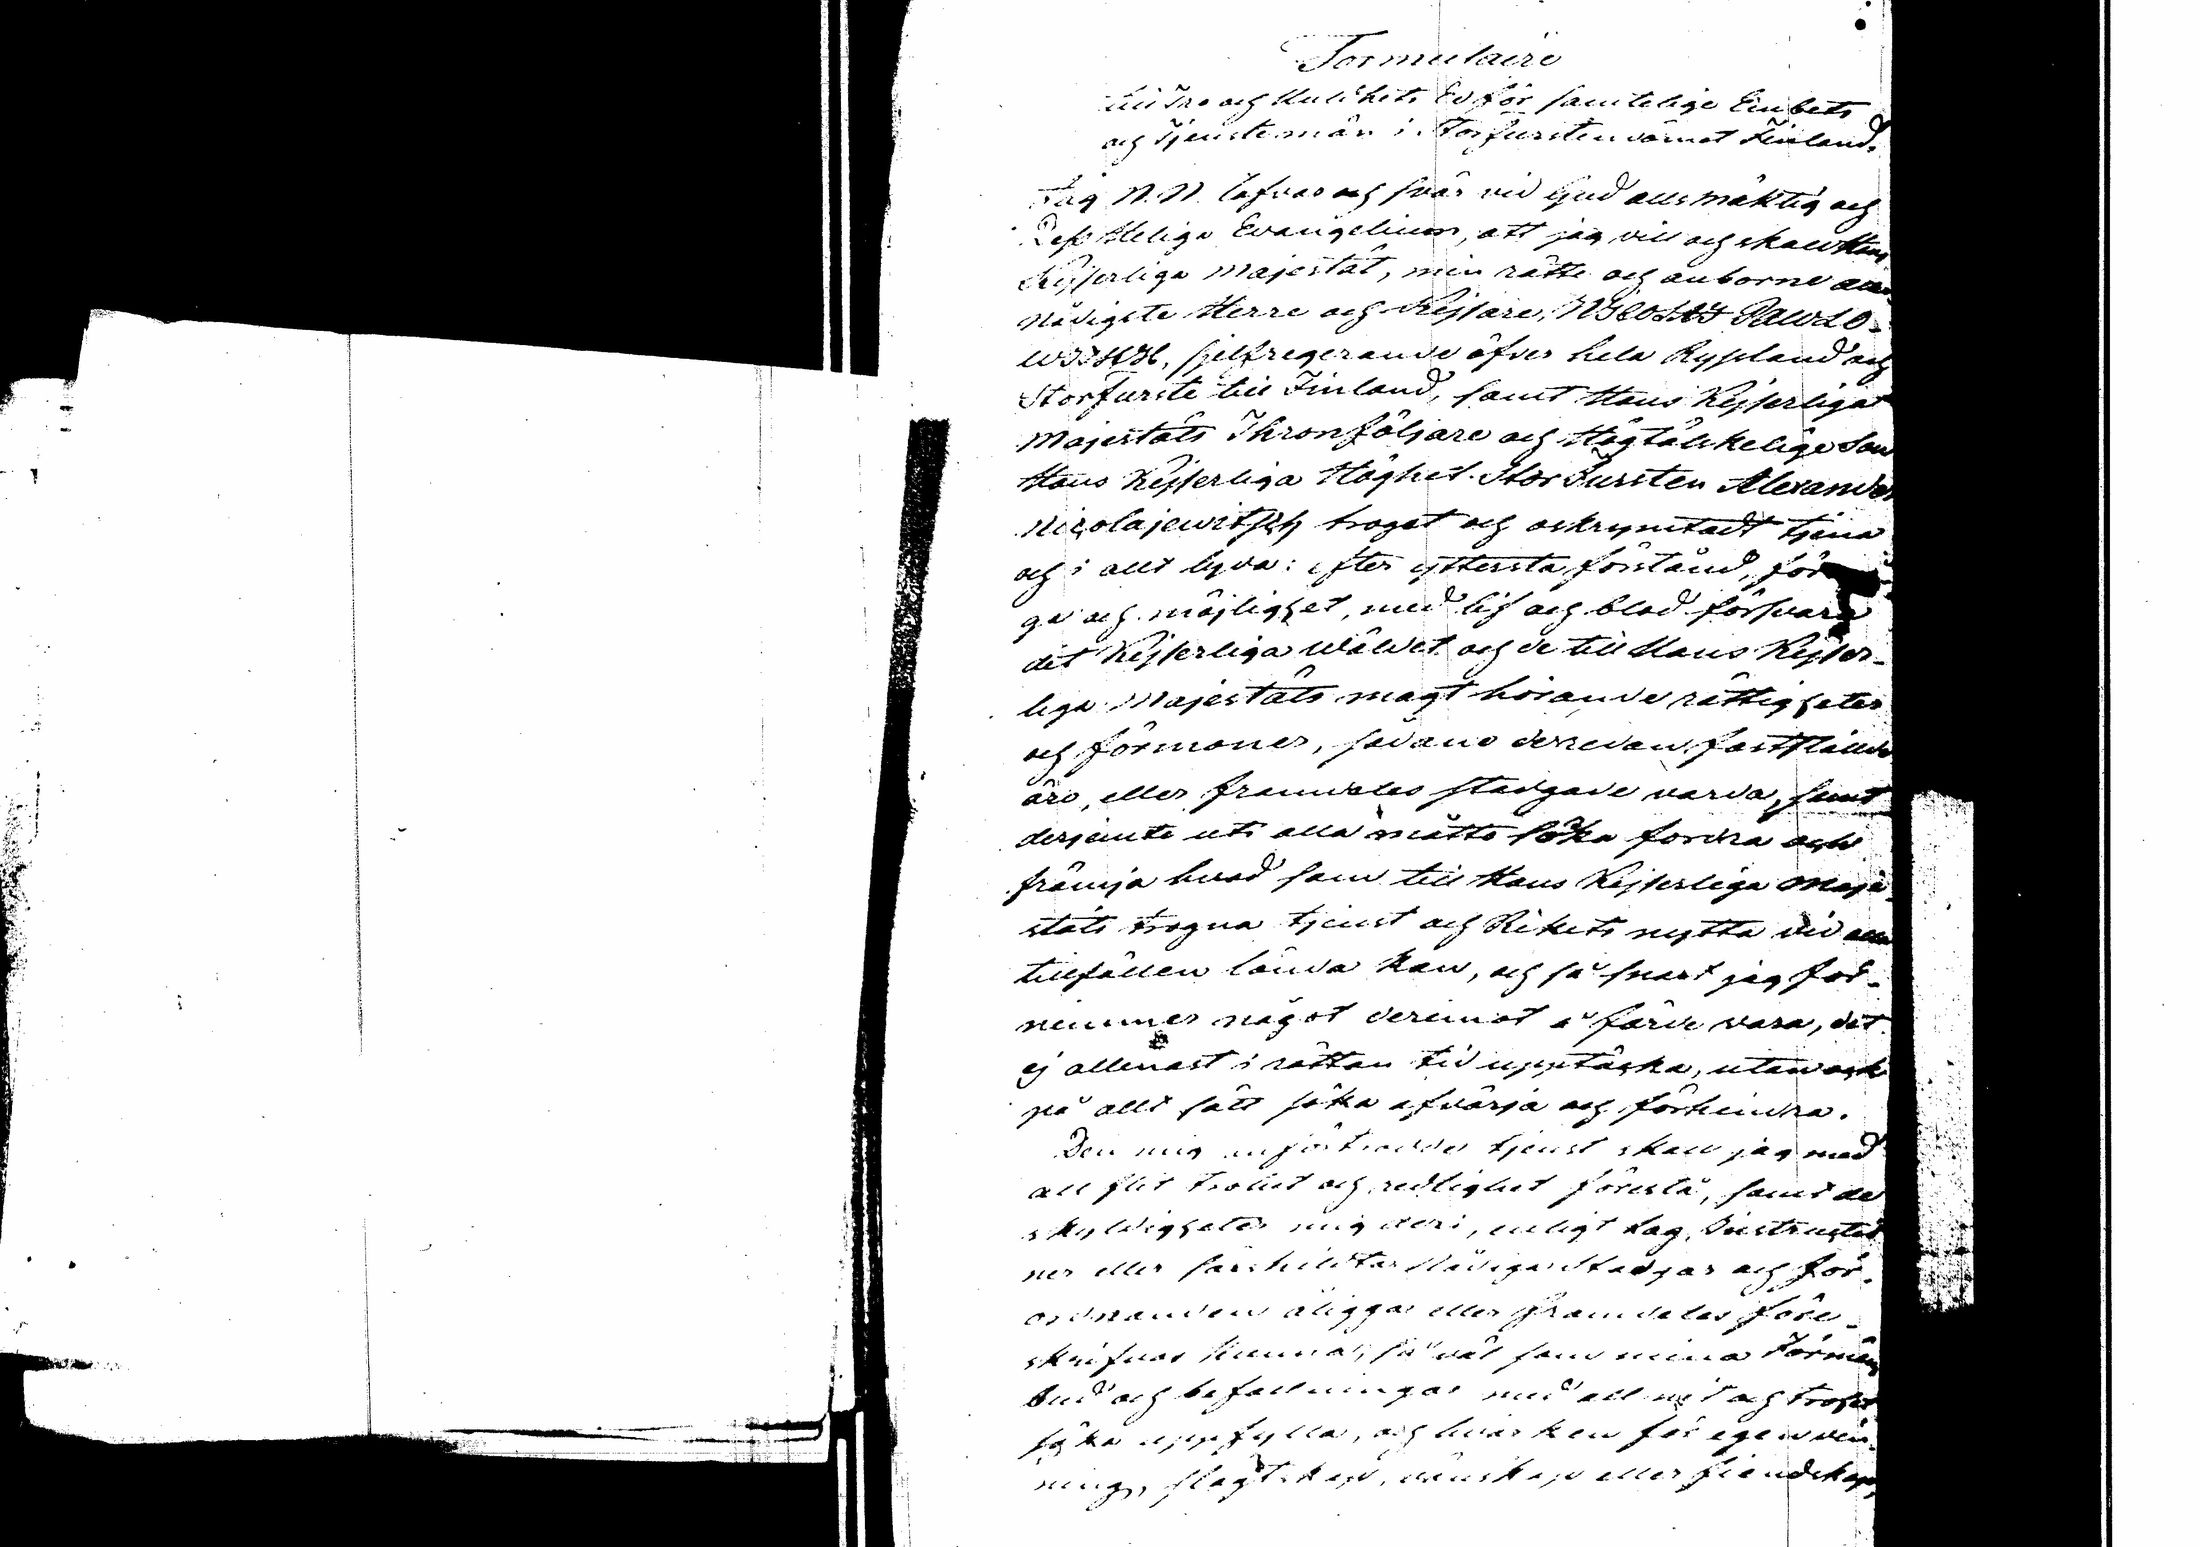 Formulaire
till Tro och Huldhets Ed för samtelige Embets
och Tjenstemän i Storfurstendömet Finland.
Jag N. N. lofvar och svär vid Gud allsmäktig och
Dess Heliga Evangelium, att jag vill och skall Hans
Kejserliga Majestät, min rätte och anborne aller-
nådigste Herre och Kejsare, NIKOLAJ PAWLO-
WITSCH, sjelfregerande öfver hela Ryssland och
Storfurste till Finland, samt Hans Kejserliga
Majestäts Thronföljare och Högtälskelige Son
Hans Kejserliga Höghet StorFursten Alexander
Nicolajewitsch troget och oskrymtadt tjena
och i allt lyda: efter yttersta förstånd, förmå-
ga och möjlighet, med lif och blod försvara
det Kejserliga Wäldet och de till Hans Kejser-
liga Majestäts magt hörande rättigheter
och förmoner, sådane de redan fastställde
äro, eller framdeles stadgade varda, samt
derjemte uti alla måtto söka fordra och
främja hvad som till Hans Kejserliga Maje-
stäts trogna tjenst och Rikets nytta vid alla
tillfällen lända kan, och så snart jag för-
nimmer något deremot å färde vara, det
ej allenast i rättan tid upptäcka, utan ock
på allt sätt söka afvärja och förhindra.
Den mig anförtrodda tjenst skall jag med
all flit trohet och redlighet förestå, samt de
skyldigheter mig deri, enligt Lag, Instructio-
ner eller särskildta Nådiga Stadgar och För-
ordnanden åligga eller framdeles före-
skrifvas kunna, så väl som mina Förmäns
bud och befallningar med all nit och trohet
söka uppfylla, och hvarken för egen vin-
ning, slägtskap, vänskap eller fiendskap,